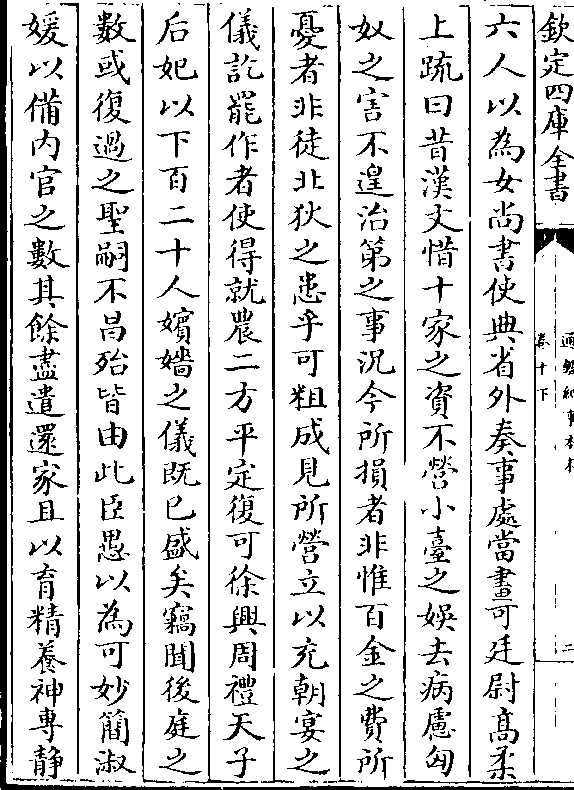 欽定四庫全書
六人以為女尚書使典省外奏事處當畫可廷尉髙柔
上疏曰昔漢文惜十家之資不營小臺之娛去病慮匈
奴之害不遑治第之事況今所損者非惟百金之費所
憂者非徒北狄之患乎可粗成見所營立以充朝宴之
儀訖罷作者使得就農二方平定復可徐興周禮天子
后妃以下百二十人嬪嬙之儀既已盛矣竊聞後庭之
數或復過之聖嗣不昌殆皆由此臣愚以為可妙簡淑
媛以備内官之數其餘盡遣還家且以育精養神専静
通鑑紀事本末
卷十下
二